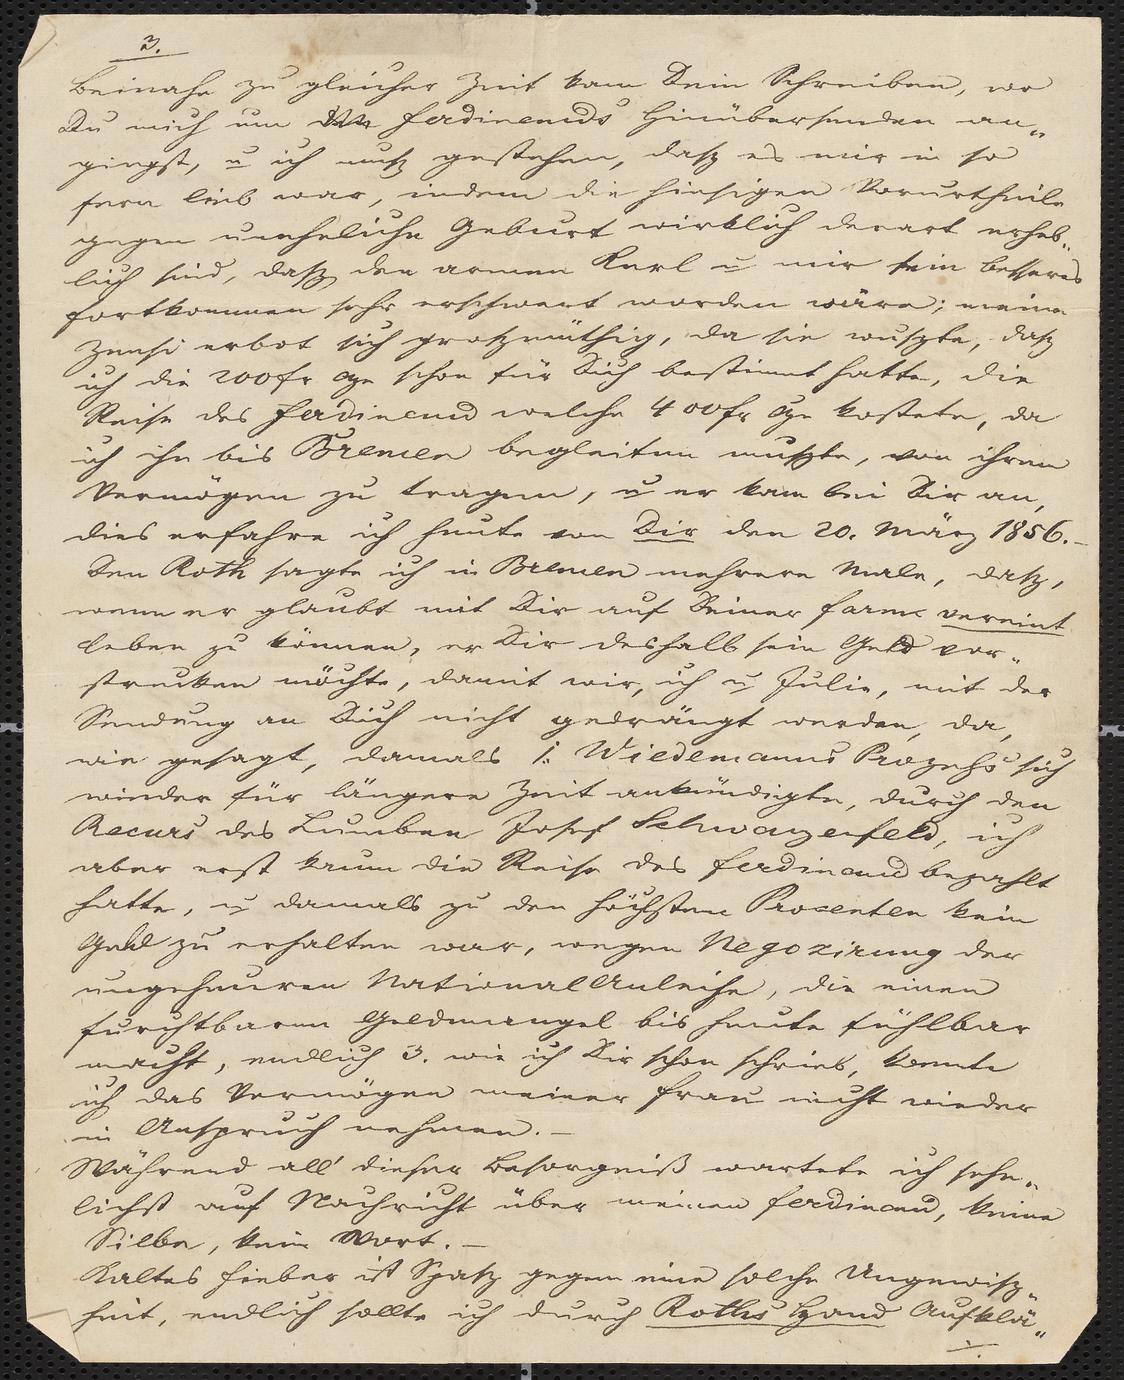 3.
Beinahe zu gleicher Zeit kam Dein Schreiben, wo
Du mich um Ferdinands Hinübersenden an„
gingst, u ich muß gestehen, daß es mir in so
fern lieb war, indem die hiesigen Vorurtheile
gegen uneheliche Geburt wirklich derart erheb„
lich sind, daß den armen Karl u mir sein besseres
Fortkommen sehr erschwert worden wäre; meine
Zensi erbot sich großmüthig, da sie wußte, daß
ich die 200fr schon für Dich bestimmt hatte, die
Reise des Ferdinand welche 400fr kostete, da
ich ihn bis Bremen begleiten mußte, von ihrem
Vermögen zu tragen, u er kam bei Dir an,
dies erfahre ich heute von Dir den 20. März 1856.–
Den Roth sagte ich in Bremen mehrere Male, daß,
wenn er glaubt mit Dir auf Deiner Farme vereint
leben zu können, er Dir deshalb sein Geld vor„
strecken möchte, damit wir, ich u Julie, mit der
Sendung an Dich nicht gedrängt werden, da,
wie gesagt, damals Wiedemanns Prozeß sich
wieder für längere Zeit ankündigte, durch den
Recurs des Lumben Josef Schwarzenfeld, ich
aber erst kaum die Reise des Ferdinand bezahlt
hatte, u damals zu den höchsten Procenten kein
Geld zu erhalten war, wegen Negozirung der
ungeheuren NationalAnleihe, die einen
furchtbaren Geldmangel bis heute fühlbar
macht, endlich 3. wie ich Dir schon schrieb, konnte
ich das Vermögen meiner Frau nicht wieder
in Anspruch nehmen. –
Während all' dieser Besorgniß wartete ich sehn„
lichst auf Nachricht über meinen Ferdinand, keine
Silbe, kein Wort. –
Kaltes Fieber ist Spaß gegen eine solche Ungewiß„
heit, endlich sollte ich durch Roths Hand Aufklä„